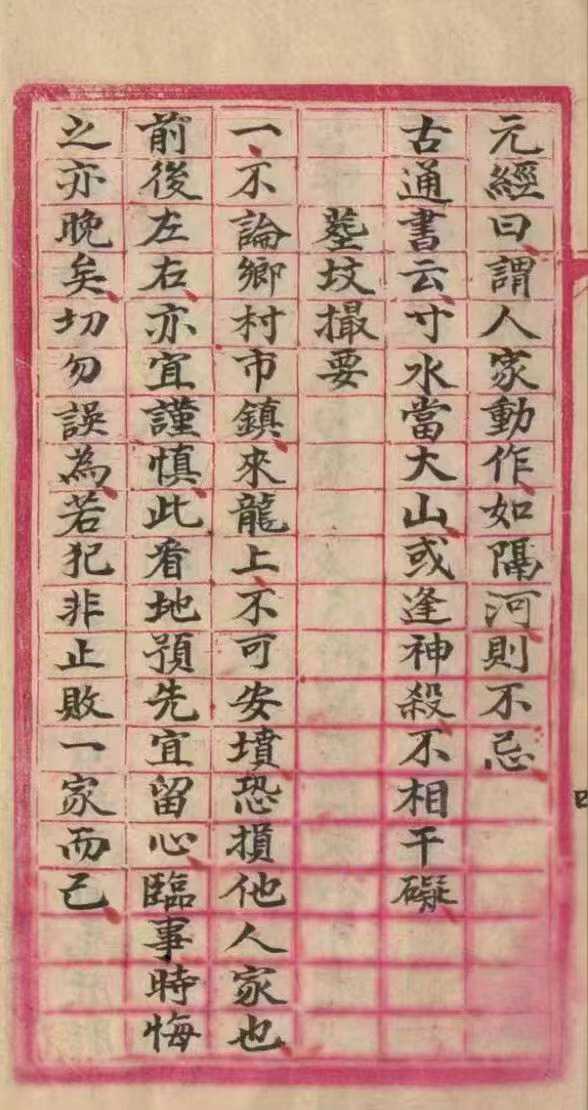 元經曰謂人家動作如隔河則不忌
古通書云寸水當大山或逢神殺不相干礙
塟坟撮要
一不論鄉村市鎮來龍上不可安墳恐損他人家也
前後左右亦宜謹慎此看地預先宜留心臨事時悔
之亦晚矣切勿誤為若犯非止敗一家而已